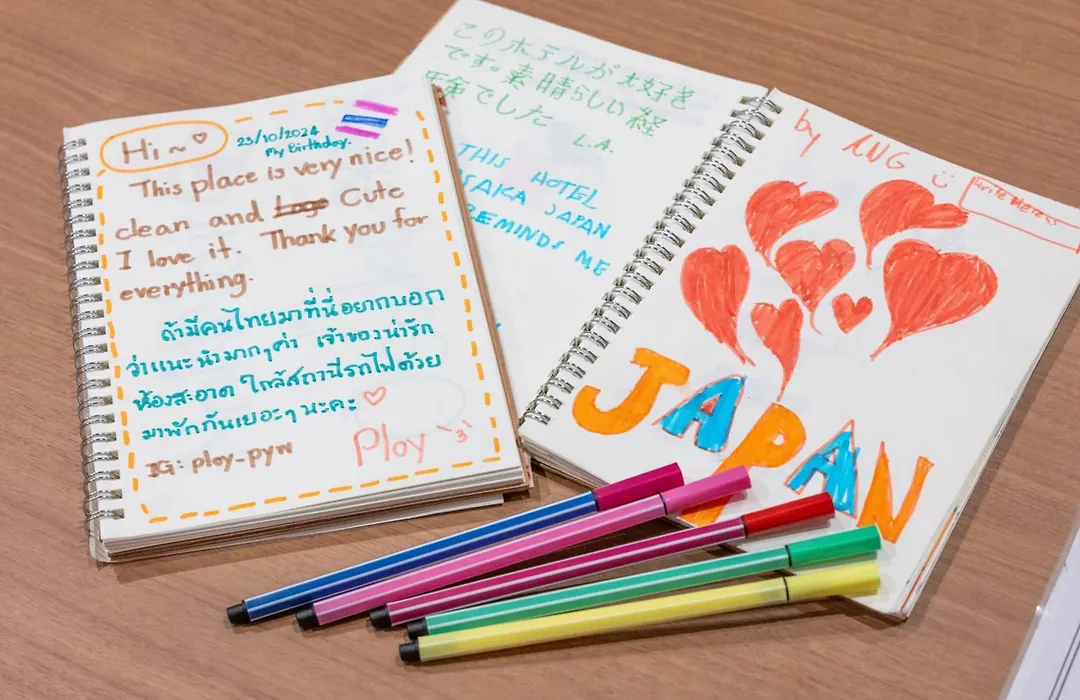 Hi~♡
23/10/2024
My Birthday.
This place is very nice!
clean and Cute
I love it. Thank you for
everything.
ถ้ามีคนไทยมาที่นี่อยากบอก
ว่าแนะนำมากๆค่ำ เจ้าของน่ารัก
ห้องสะอาด ใกล้สถานีรถไฟด้วย
มาพักกันเยอะๆ นะคะ ♡
Ploy
IG: ploy-pyw
このホテルが大好き
です。素晴らしい経
験でした
L.A.
THIS HOTEL
OSAKA JAPAN
REMINDS ME
by ANG
JAPAN